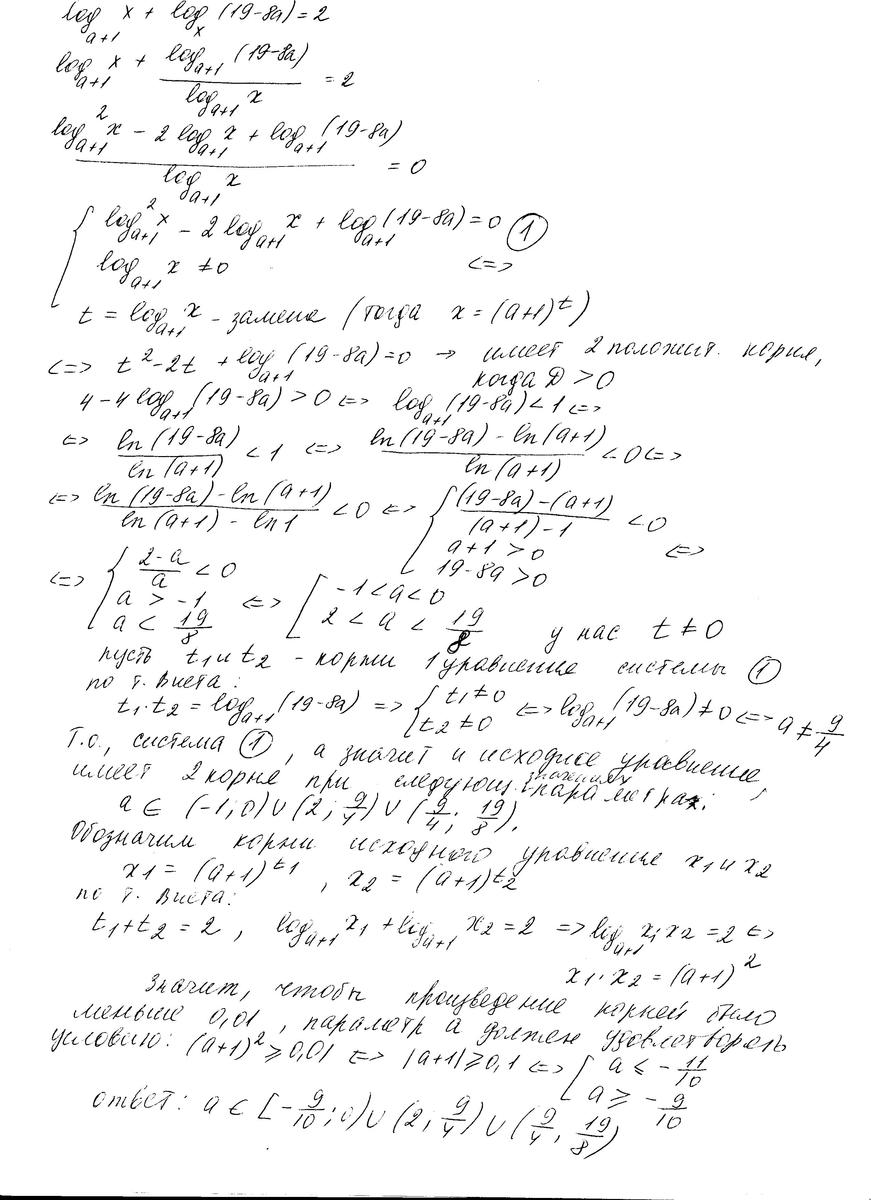 log_{a+1} x + log_x (19-8a) = 2
log_{a+1} x + \frac{log_{a+1} (19-8a)}{log_{a+1} x} = 2
\frac{log^2_{a+1} x - 2 log_{a+1} x + log_{a+1} (19-8a)}{log_{a+1} x} = 0
{ log^2_{a+1} x - 2 log_{a+1} x + log_{a+1} (19-8a) = 0 ①
log_{a+1} x ≠ 0 <=>
t = log_{a+1} x - замена (тогда x = (a+1)^t)
<=> t^2 - 2t + log_{a+1} (19-8a) = 0 → имеет 2 положит. корня,
когда D > 0
4 - 4 log_{a+1} (19-8a) > 0 <=> log_{a+1} (19-8a) < 1 <=>
<=> \frac{ln (19-8a)}{ln (a+1)} < 1 <=> \frac{ln (19-8a) - ln (a+1)}{ln (a+1)} < 0 <=>
<=> \frac{ln (19-8a) - ln (a+1)}{ln (a+1) - ln 1} < 0 <=> { \frac{(19-8a) - (a+1)}{(a+1) - 1} < 0
a+1 > 0
19-8a > 0 <=>
<=> { \frac{2-a}{a} < 0
a > -1
a < \frac{19}{8} <=> [ -1 < a < 0
2 < a < \frac{19}{8} у нас t ≠ 0
пусть t_1 и t_2 - корни 1 уравнения системы ①
по т. Виета:
t_1 · t_2 = log_{a+1} (19-8a) => { t_1 ≠ 0
t_2 ≠ 0 <=> log_{a+1} (19-8a) ≠ 0 <=> a ≠ \frac{9}{4}
Т.о., система ①, а значит и исходное уравнение,
имеет 2 корня при следующ. значениях параметра:
a ∈ (-1; 0) ∪ (2; \frac{9}{4}) ∪ (\frac{9}{4}; \frac{19}{8}).
Обозначим корни исходного уравнения x_1 и x_2
x_1 = (a+1)^{t_1}, x_2 = (a+1)^{t_2}
по т. Виета:
t_1 + t_2 = 2, log_{a+1} x_1 + log_{a+1} x_2 = 2 => log_{a+1} x_1 x_2 = 2 <=>
x_1 · x_2 = (a+1)^2
Значит, чтобы произведение корней было
меньше 0,01, параметр a должен удовлетворять
условию: (a+1)^2 ⩾ 0,01 <=> |a+1| ⩾ 0,1 <=> [ a ⩽ -\frac{11}{10}
a ⩾ -\frac{9}{10}
ответ: a ∈ [-\frac{9}{10}; 0) ∪ (2; \frac{9}{4}) ∪ (\frac{9}{4}; \frac{19}{8})